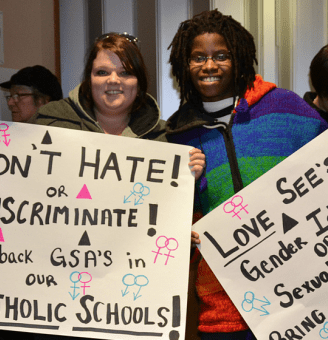 ON'T HATE!
OR
SCRIMINATE!
back GSA'S in
OUR
THOLIC SCHOOLS!
LOVE SEE'S
Gender I
OR
Sexu
BRING